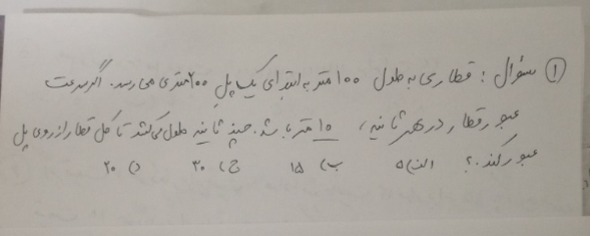 ① سؤال : قطاری به طول ۱۰۰ متر به ابتدای یک پلِ ۲۰۰ متری می رسد. اگر سرعت
عبور قطار در هر ثانیه ، ۱۰ متر باشد. چند ثانیه طول می کشد تا کل قطار از روی پل
عبور کند. ؟ الف) ۵ ب) ۱۵ ج) ۳۰ د) ۲۰